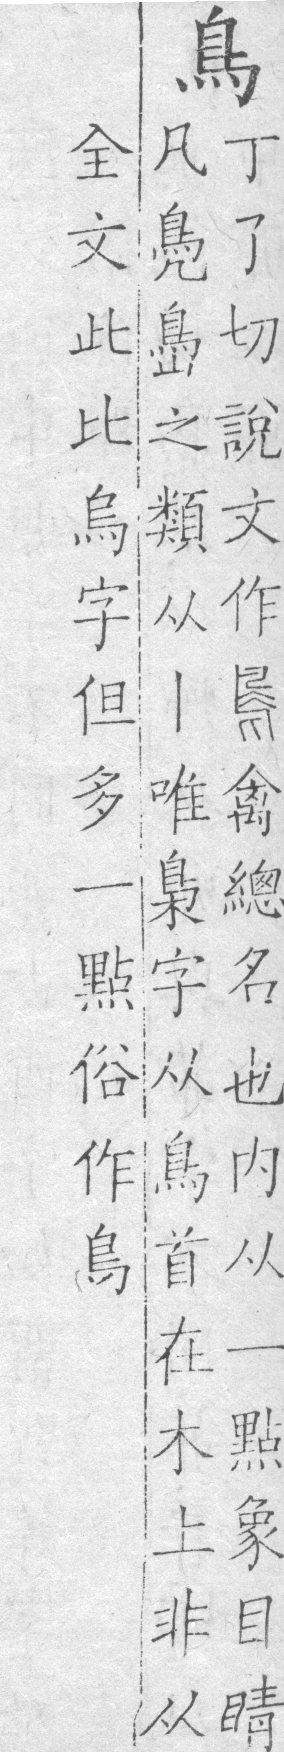 鳥
丁了切說文作鳥禽總名也内从一點象目睛
凡鳧島之類从丨唯梟字从鳥首在木上非从
全文此比烏字但多一點俗作鳥